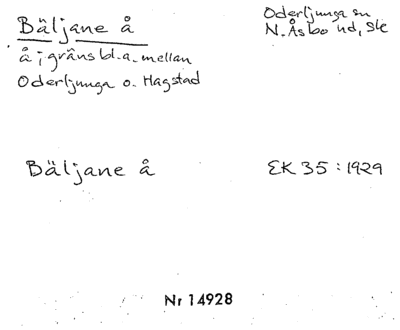 Bäljane å
Oderljunga sn
N. Åsbo hd, Skå
å; gräns bl. a. mellan
Oderljunga o. Hagstad
Bäljane å
EK 35 : 1929
Nr 14928